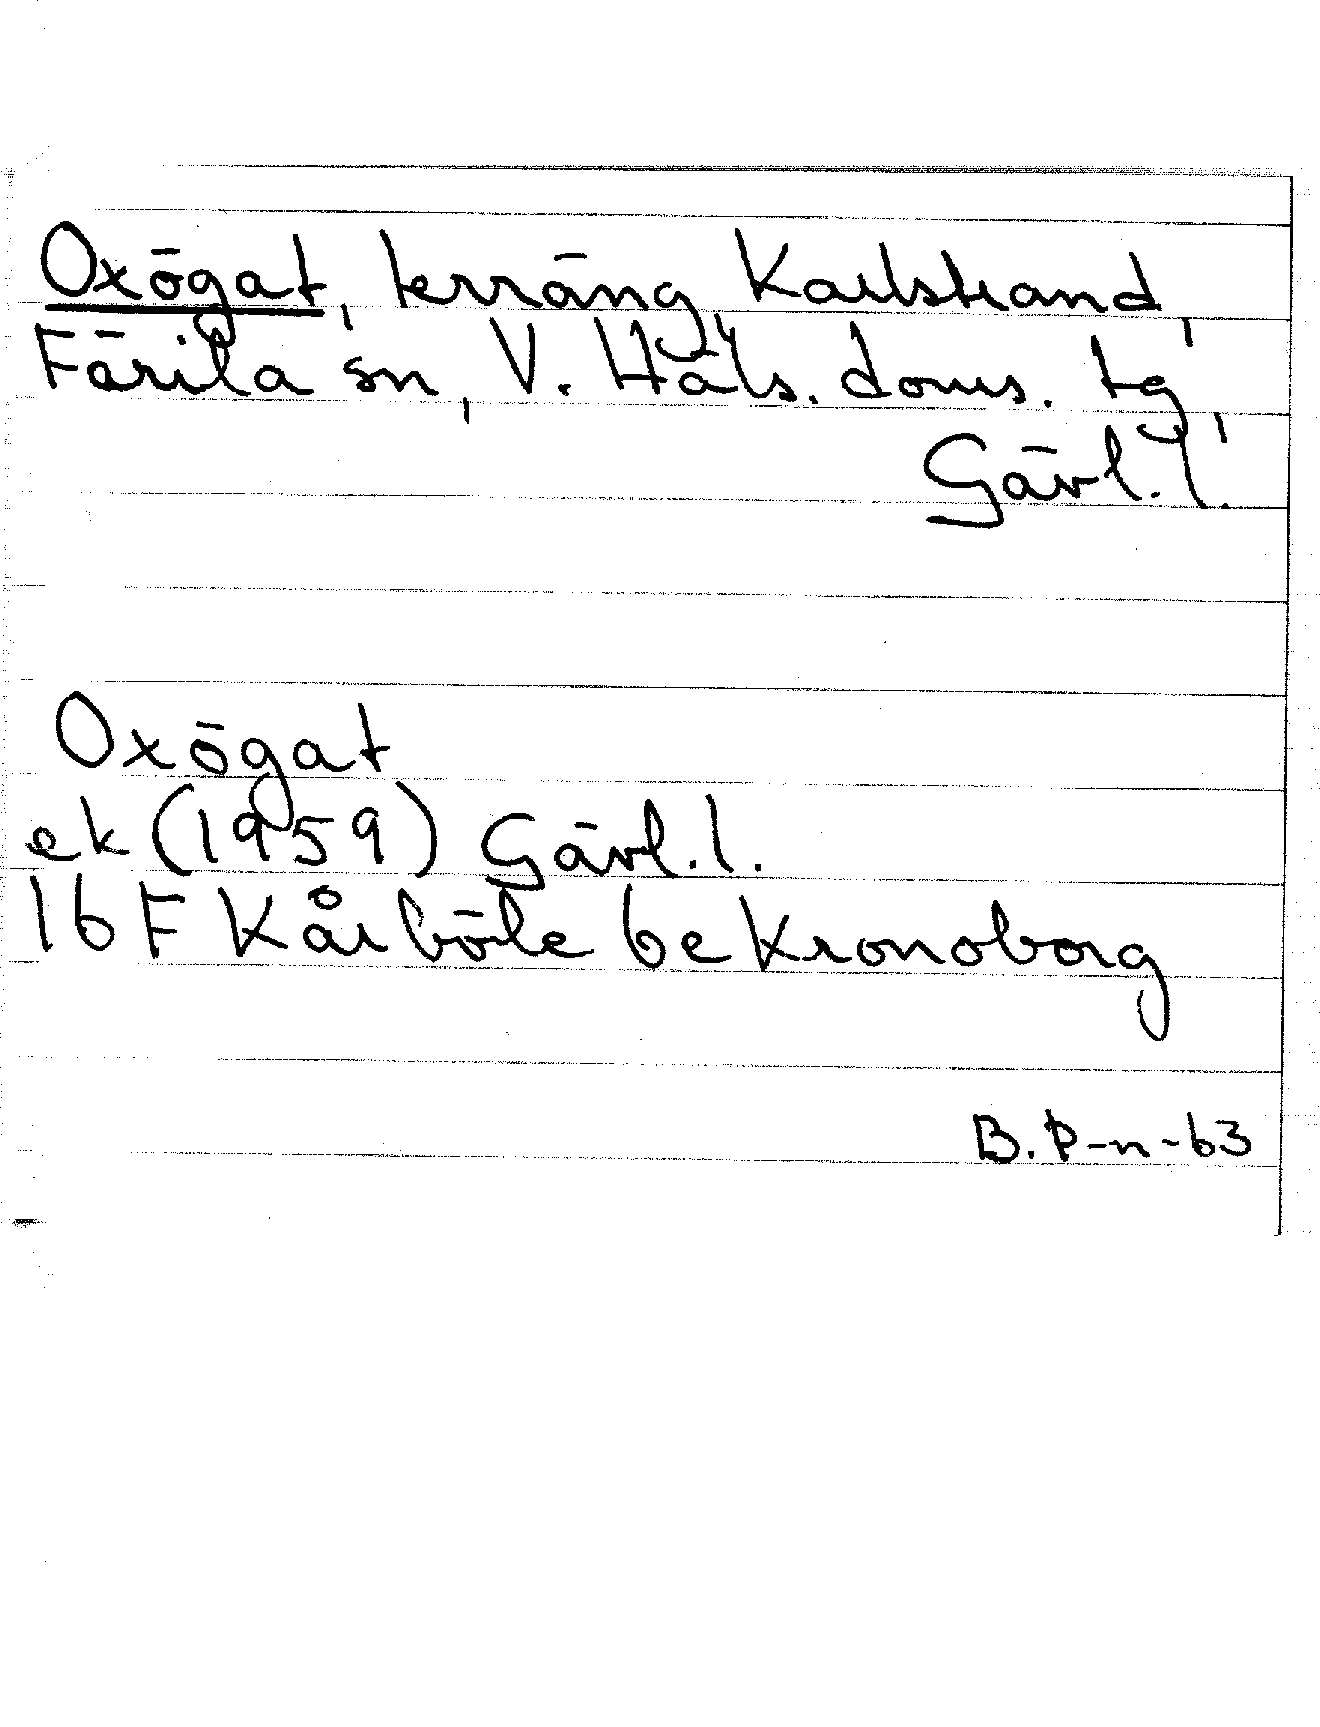 Oxögat, terräng, Karlstrand,
Färila sn, V. Häls. doms. tg,
Gävl. l.
Oxögat
ek (1959) Gävl. l.
16 F Kårböle 6e Kronoborg
B. P-n-63